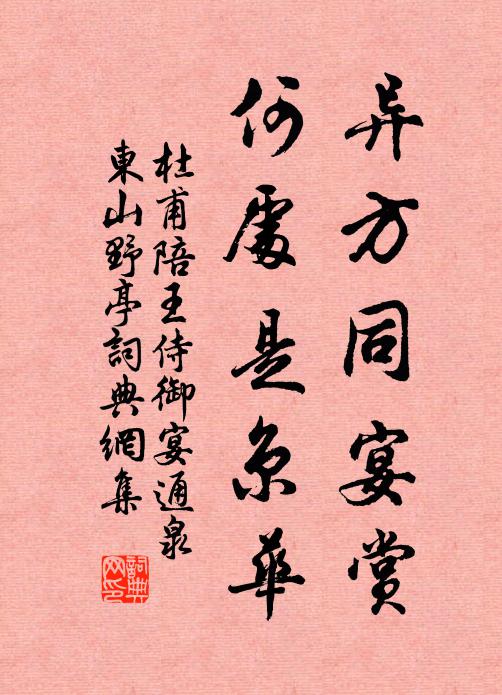 异方同宴赏
何處是京華
杜甫陪王侍御宴通泉
東山野亭詞典網集
詞典网印